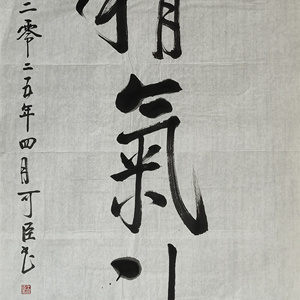 精氣
二零二五年四月可臣書